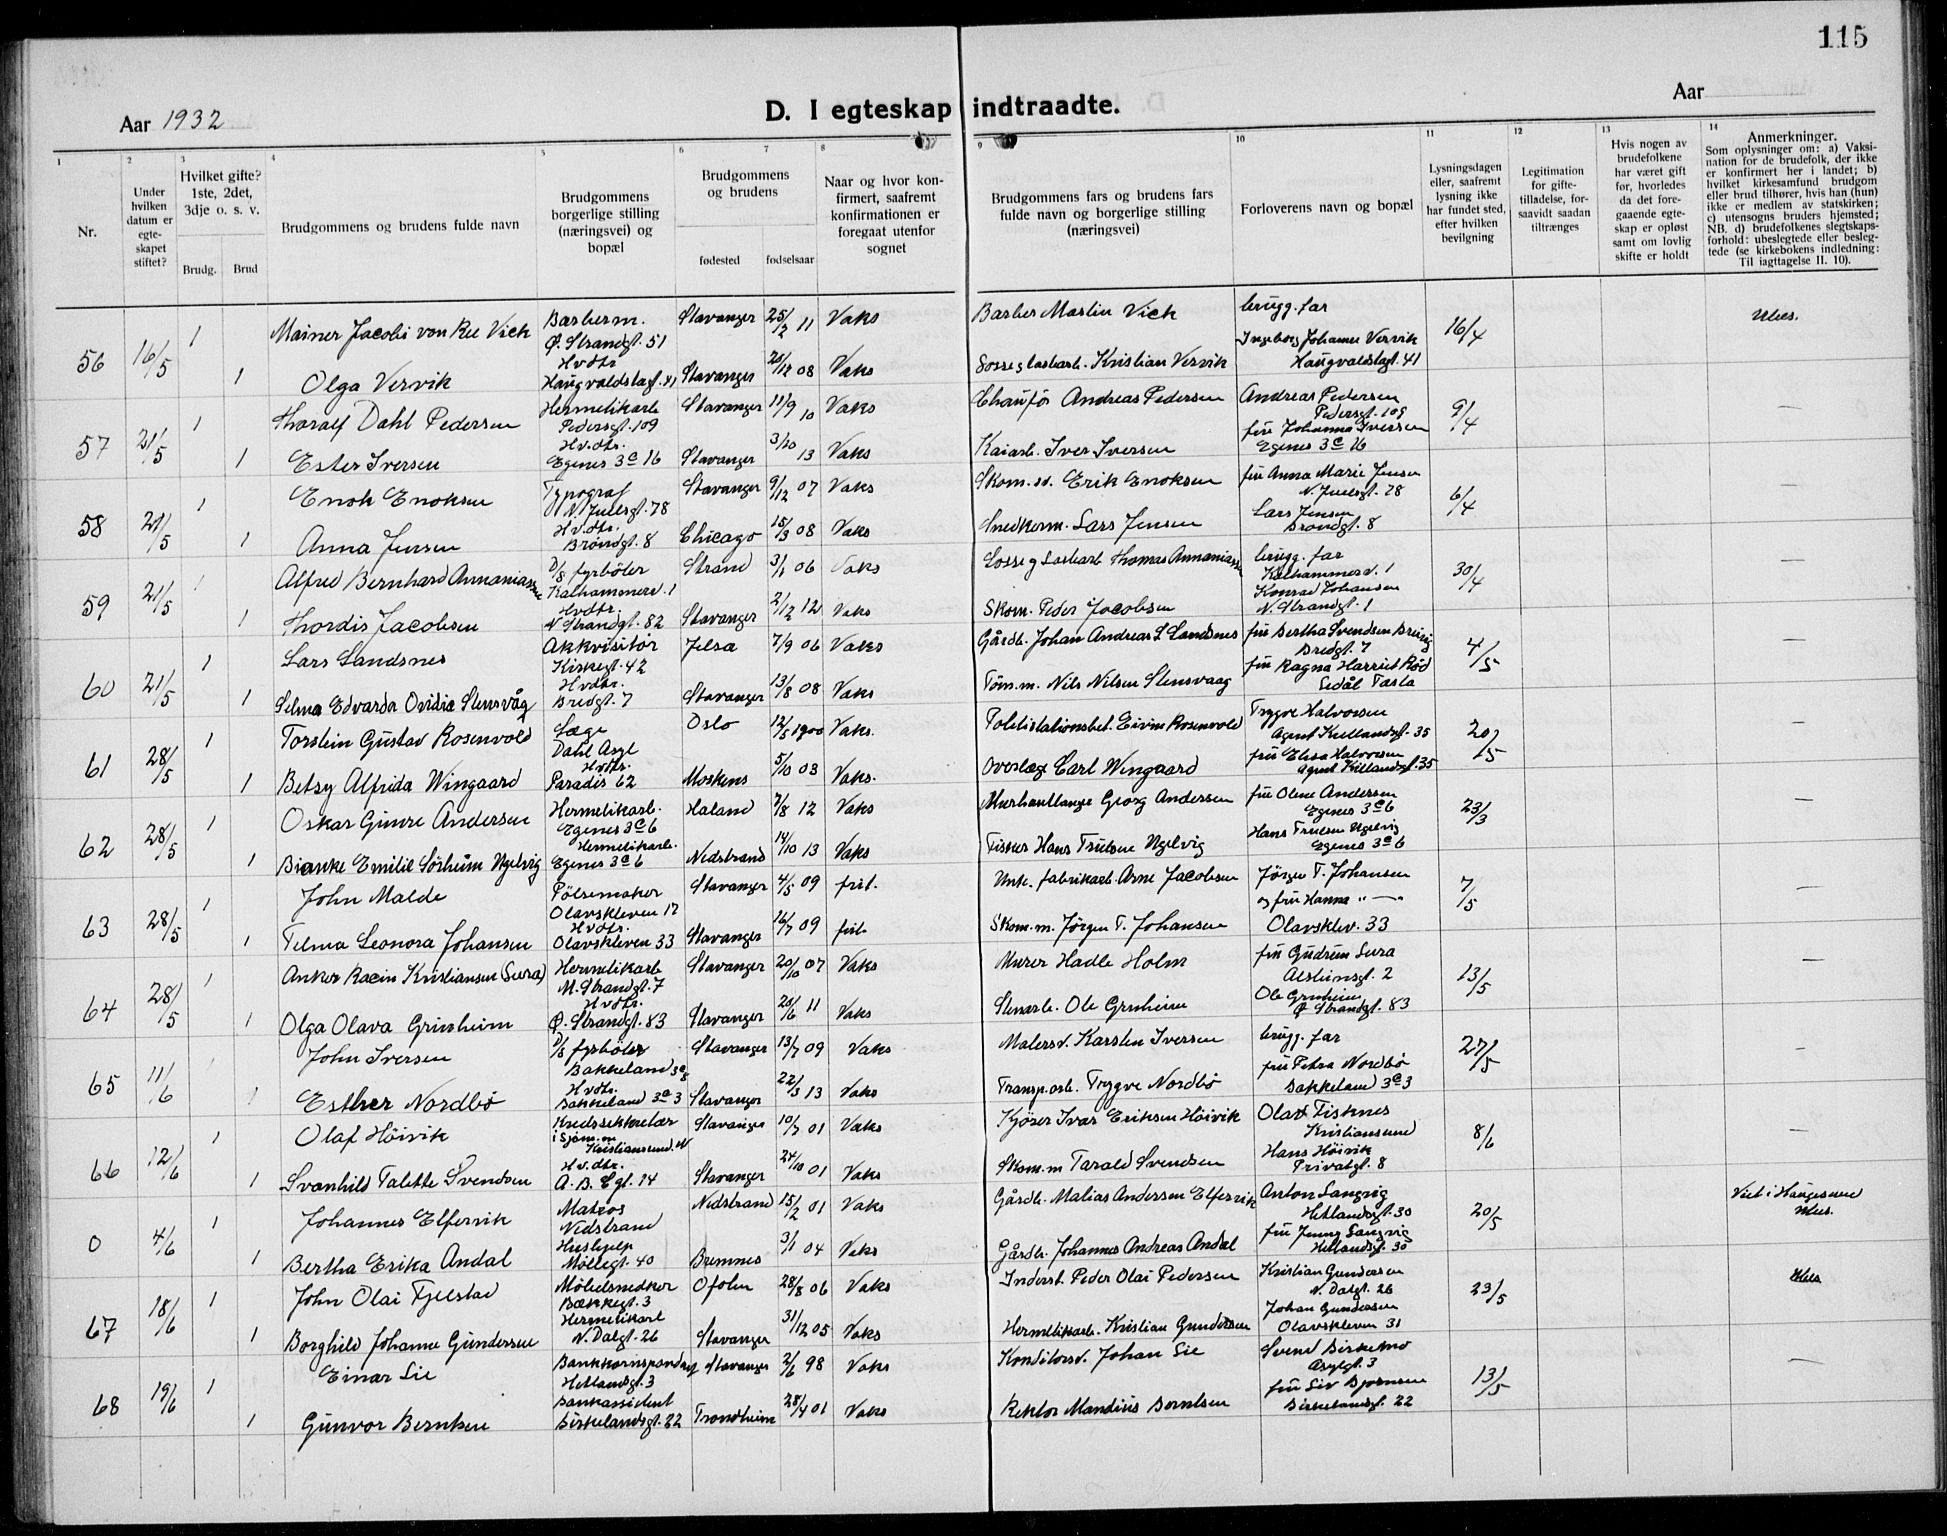 115
Aar 1932
D. I egteskap indtraadte.
Aar
1 2 3 4 5 6 7 8 9 10 11 12 13 14
Nr.
Under hvilken datum er egteskapet stiftet?
Hvilket gifte? 1ste, 2det, 3dje o. s. v.
Brudg. Brud
Brudgommens og brudens fulde navn
Brudgommens borgerlige stilling (næringsvei) og bopæl
Brudgommens og brudens
fødested fødselsaar
Naar og hvor konfirmert, saafremt konfirmationen er foregaat utenfor sognet
Brudgommens fars og brudens fars fulde navn og borgerlige stilling (næringsvei)
Forloverens navn og bopæl
Lysningsdagen eller, saafremt lysning ikke har fundet sted, efter hvilken bevilgning
Legitimation for giftetilladelse, forsaavidt saadan tiltrænges
Hvis nogen av brudefolkene har været gift før, hvorledes da det foregaaende egteskap er opløst samt om lovlig skifte er holdt
Anmerkninger.
Som oplysninger om: a) Vaksination for de brudefolk, der ikke er konfirmert her i landet; b) hvilket kirkesamfund brudgom eller brud tilhører, hvis han (hun) ikke er medlem av statskirken; c) utensogns bruders hjemsted; NB. d) brudefolkenes slegtskapsforhold: ubeslegtede eller beslegtede (se kirkebokens indledning: Til iagttagelse II. 10).
56 16/5 1 Mainer Jacobi von Ree Vick Barberm. Ø. Strandgt. 51 Stavanger 25/2 11 Vaks Barber Martin Vick brugg. far 16/4
1 Olga Vervik Hvdtr Haugvaldstagt. 41 Stavanger 20/12 08 Vaks Losse og lastearb. Kristian Vervik Ingeborg Johanne Vervik Haugvaldstagt. 41
57 21/5 1 Thoralf Dahl Pedersen Hermetikarb Pedersgt. 109 Stavanger 11/9 10 Vaks Chaufør Andreas Pedersen Andreas Pedersen Pedersgt. 109 9/4 —
1 Ester Iversen Hv.dtr. Egenes 3c 16 Stavanger 3/10 13 Vaks Kaiarb. Iver Iversen fru Johanna Iversen Egenes 3c 16
58 21/5 1 Enok Enoksen Typograf N. Juelsgt. 78 Stavanger 9/12 07 Vaks Skom. sv. Erik Enoksen fru Anna Marie Jensen N. Juelsgt. 78 6/4 —
1 Anna Jensen Hv.dtr. Brøndgt. 8 Chicago 15/3 08 Vaks Snedkerm. Lars Jensen Lars Jensen Brøndgt. 8
59 21/5 1 Alfred Bernhard Annaniassen D/S fyrbøter Kalhammerv. 1 Strand 3/1 06 Vaks Losse og Lastearb Thomas Annaniassen brugg. far Kalhammerv. 1 30/4 —
1 Thordis Jacobsen Hvdtr. N Strandgt. 82 Stavanger 2/12 12 Vaks Skom. Peder Jacobsen Konrad Johansen N. Strandgt. 1
60 21/5 1 Lars Landsnes Akkvisitør Kirkegt. 42 Jelsa 7/9 06 Vaks Gårdb. Johan Andreas L Landsnes fru Bertha Svendsen Breivig Bredgt. 7 4/5 —
1 Selma Edvarda Ovidia Stensvåg Hvdtr. Bredgt. 7 Stavanger 13/8 08 Vaks Tøm.m. Nils Nilsen Stensvaag fru Ragna Harriet Rød Sedål Tasta
61 28/5 1 Torstein Gustav Rosenvold Læge Dahl Asyl Oslo 12/5 1900 Vaks. Politistationsbet. Eivin Rosenvold Trygve Halvorsen Agent Kiellandsgt. 35 20/5 —
1 Betsy Alfrida Wingaard Hvdtr. Paradis 62 Moskenes 5/10 03 Vaks. Overlæge Carl Wingaard fru Elisa Halvorsen Agent Kiellandsgt. 35
62 28/5 1 Oskar Gunvre Andersen Hermetikarb. Egenes 3c6 Haland 7/8 12 Vaks Murhantlanger Georg Andersen fru Olene Andersen Egenes 3c6 23/3 —
1 Bianke Emilie Sørheim Ugelvig Hermetikarb. Egenes 3c6 Nedstrand 14/10 13 Vaks Fisker Hans Trulsen Ugelvig Hans Trulsen Ugelvig Egenes 3c6
63 28/5 1 John Malde Pølsemaker Olavskleven 17 Stavanger 4/5 09 frit. Unk. fabrikarb. Arne Jacobsen Jørgen T. Johansen 7/5 —
1 Telma Leonora Johansen Hvdtr. Olavskleven 33 Stavanger 16/7 09 frit. Skom. m. Jørgen T. Johansen og fru Hanna " — Olavsklev. 33
64 28/5 1 Anker Racin Kristiansen (Sura) Hermetikarb M. Strandgt. 7 Stavanger 20/10 07 Vaks Murer Hadle Holm fru Gudrun Sura 13/5 —
1 Olga Olava Grinheim Hvdtr. Ø. Strandgt. 83 Stavanger 20/6 11 Vaks Stenarb. Ole Grinheim Ole Grinheim Ø Strandgt. 83
65 11/6 1 John Iversen D/S fyrbøter Bakkeland 3c8 Stavanger 13/7 09 Vaks Malersv. Karsten Iversen brugg. far 27/5 —
1 Esther Nordbø Hvdtr. Bakkeland 3c3 Stavanger 22/3 13 Vaks Transp.arb. Trygve Nordbø fru Petra Nordbø Bakkeland 3c3
66 12/6 1 Olaf Høivik Kredssekretær i Sjøm.m Kristiansund. N Stavanger 10/7 01 Vaks Kjører Ivar Eriksen Høivik Olaf Fisknes Kristiansund 8/6 —
1 Svanhild Talette Svendsen Hv.dtr. A.B. Lgt. 14 Stavanger 24/10 01 Vaks Skom.m Tarald Svendsen Hans Høivik Privatgt. 8
0 4/6 1 Johannes Elfervik Matros Nedstrand Nedstrand 15/2 01 Vaks Gårdb. Malias Andersen Elfervik Anton Langvig Hetlandsgt. 30 20/5 Viet i Haugesund
1 Bertha Erika Andal Hushjelp Møllegt. 40 Bremnes 3/1 04 Vaks Gårdb. Johannes Andreas Andal fru Jenny Langvig Hetlandsgt. 30
67 18/6 1 John Olai Fjelstad Møbelsnedker Bækkegt. 3 Ofoten 28/8 06 Vaks Inderst. Peder Olai Pedersen Kristian Gundersen N. Dalgt. 26 23/5
1 Borghild Johanne Gundersen Hermetikarb N. Dalgt. 26 Stavanger 31/12 05 Vaks Hermetikarb. Kristian Gundersen Johan Gundersen Olavskleven 31
68 19/6 1 Einar Lie Bankkorrespondent Hetlandsgt. 3 Stavanger 2/6 98 Vaks Konditorsv. Johan Lie Svend Birkemo Asylgt. 3 13/5 —
1 Gunvor Berntsen Bankassistent Birkelandsgt. 22 Trondheim 28/4 01 Vaks Rektor Mandius Berntsen fru Siv Bjørnsen Birkelandsgt. 22